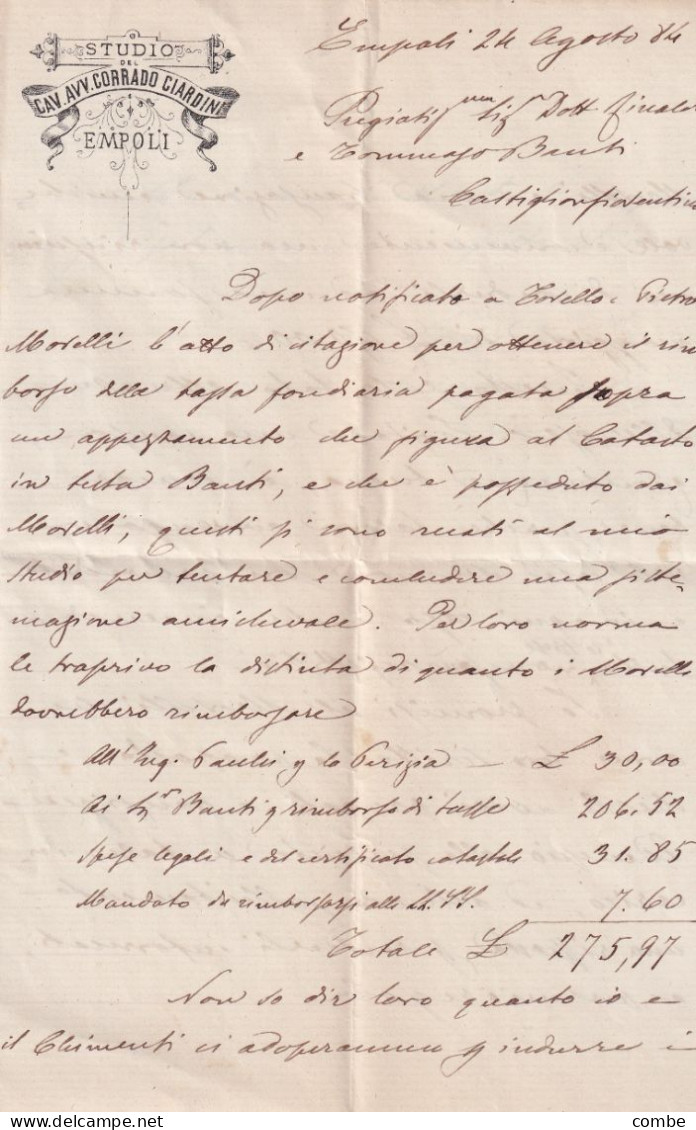 STUDIO
DEL
CAV. AVV. CORRADO CIARDINI
EMPOLI
Empoli 24 Agosto 84
Pregiatiss mi Sig Dott
e Tommaso Banti
Castiglionfiorentino
Dopo notificato a Torello e Pietro
Morelli l'atto di citazione per ottenere il rim
borso della tassa fondiaria pagata sopra
un appezzamento che figura al Catasto
in testa Banti, e che è posseduto dai
Morelli, questi si sono recati al mio
studio per tentare e concludere una siste-
mazione amichevole. Per loro norma
le trascrivo la distinta di quanto i Morelli
dovrebbero rimborsare
All'Ing. p la Perizia — £ 30,00
Ai Sigr Banti p rimborso di tasse 206.52
Spese legali e del certificato catastale 31.85
Mandato da rimborsarsi alle LL. SS. 7.60
Totale £ 275,97
Non so dir loro quanto io e
il Chimenti ci adoperammo p indurre i
combe